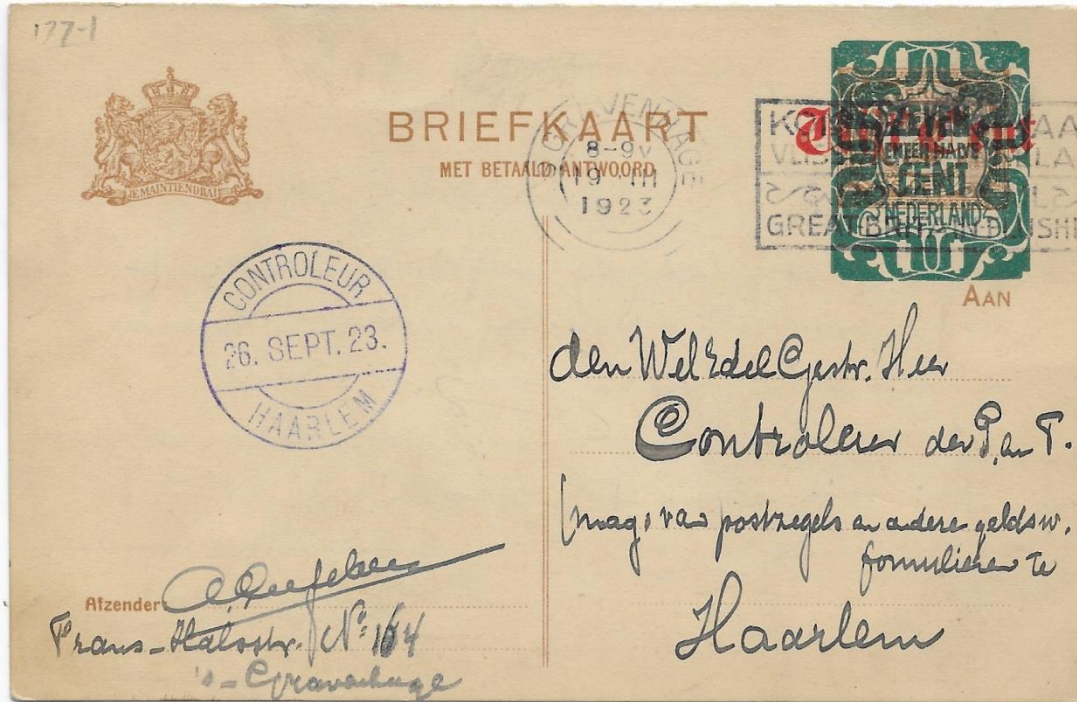 177-1
JE MAINTIENDRAI
BRIEFKAART
MET BETAALD ANTWOORD
'S GRAVENHAGE
8-9V
19 III
1923
Cent
ZEVEN
EN EEN HALVE
CENT
NEDERLAND
GREAT BRIT
AAN
CONTROLEUR
26. SEPT. 23.
HAARLEM
den WelEdelGestr. Heer
Controleur der P. en T.
(mag. van postzegels en andere geldsw.
formulieren te
Haarlem
Afzender:
Frans-Halsstr. No 164
's-Gravenhage